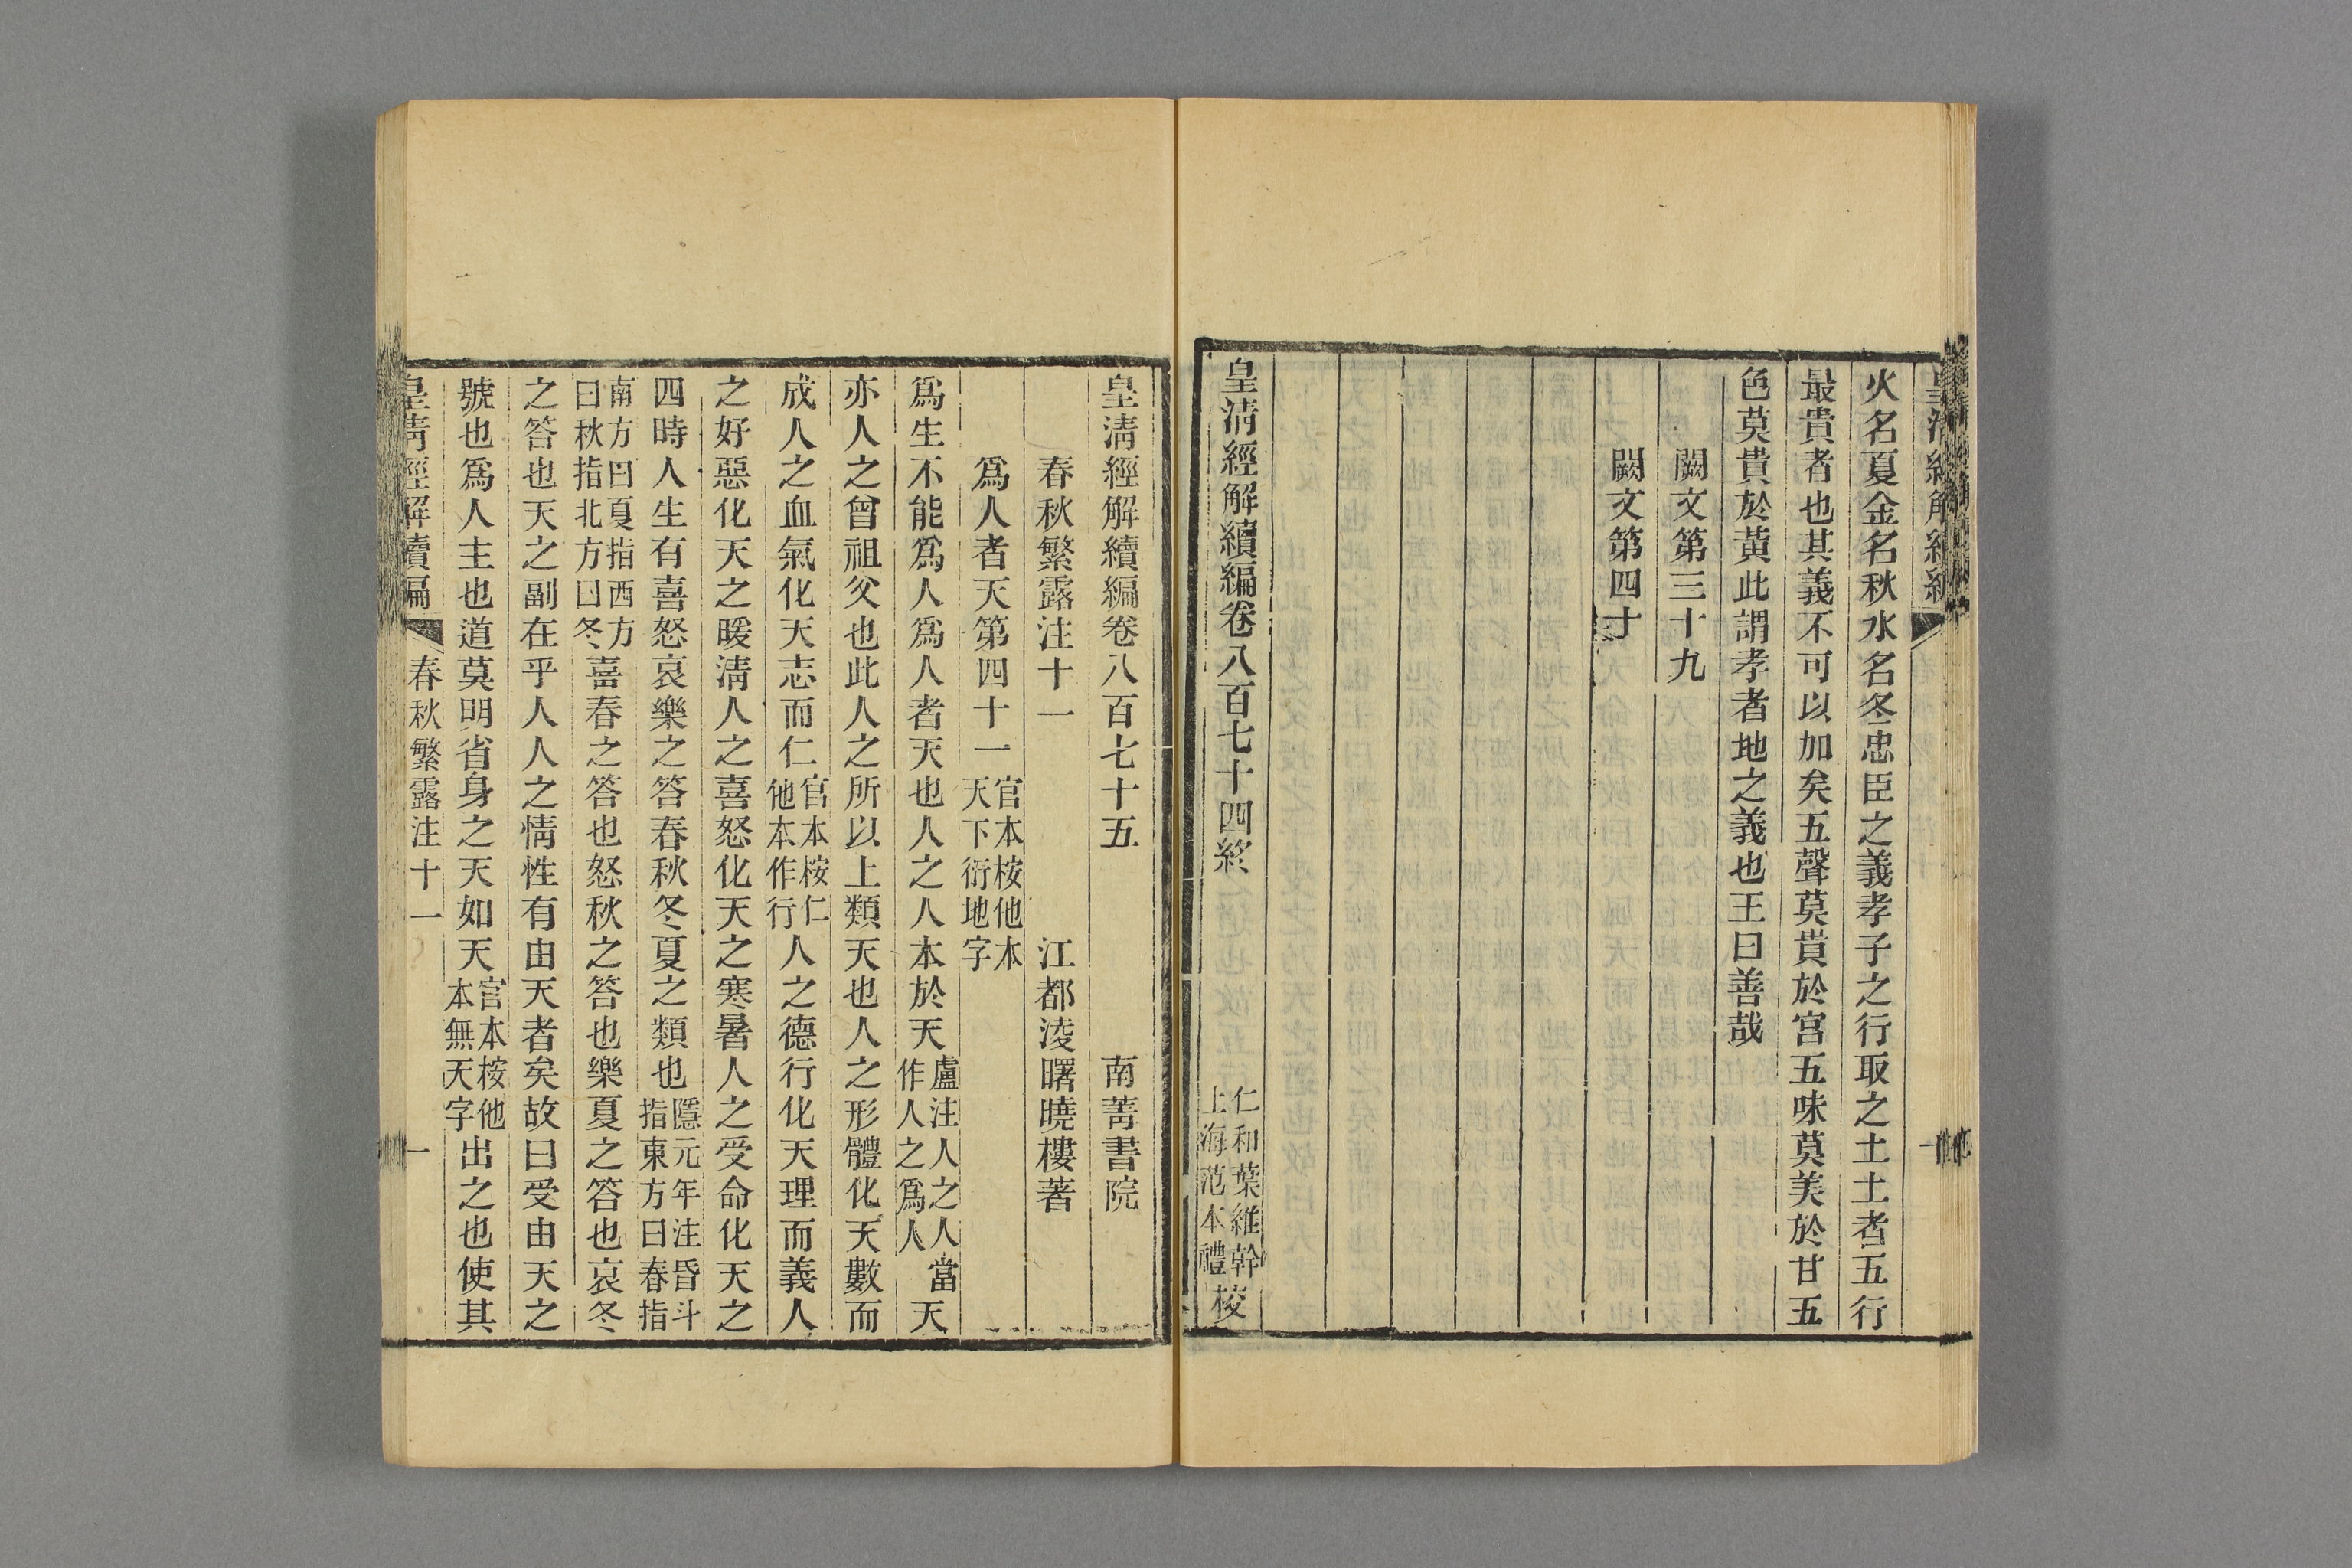 火名夏金名秋水名冬忠臣之義孝子之行取之土土者五行
最貴者也其義不可以加矣五聲莫貴於宮五味莫美於甘五
色莫貴於黃此謂孝者地之義也王曰善哉
闕文第三十九
闕文第四十
皇清經解續編卷八百七十四終
仁和葉維幹
上海范本禮
校
皇清經解續編卷八百七十五
南菁書院
春秋繁露注十一
江都淩曙曉樓著
爲人者天第四十一
官本桉他本
天下衍地字
爲生不能爲人爲人者天也人之人本於天
盧注人之人當
作人之爲人
天
亦人之曾祖父也此人之所以上類天也人之形體化天數而
成人之血氣化天志而仁
官本桉仁
他本作行
人之德行化天理而義人
之好惡化天之暖清人之喜怒化天之寒暑人之受命化天之
四時人生有喜怒哀樂之答春秋冬夏之類也
隱元年注昏斗
指東方曰春指
南方曰夏指西方
曰秋指北方曰冬
喜春之答也怒秋之答也樂夏之答也哀冬
之答也天之副在乎人人之情性有由天者矣故曰受由天之
號也爲人主也道莫明省身之天如天
官本桉他
本無天字
出之也使其
皇清經解續編
春秋繁露注十一
一